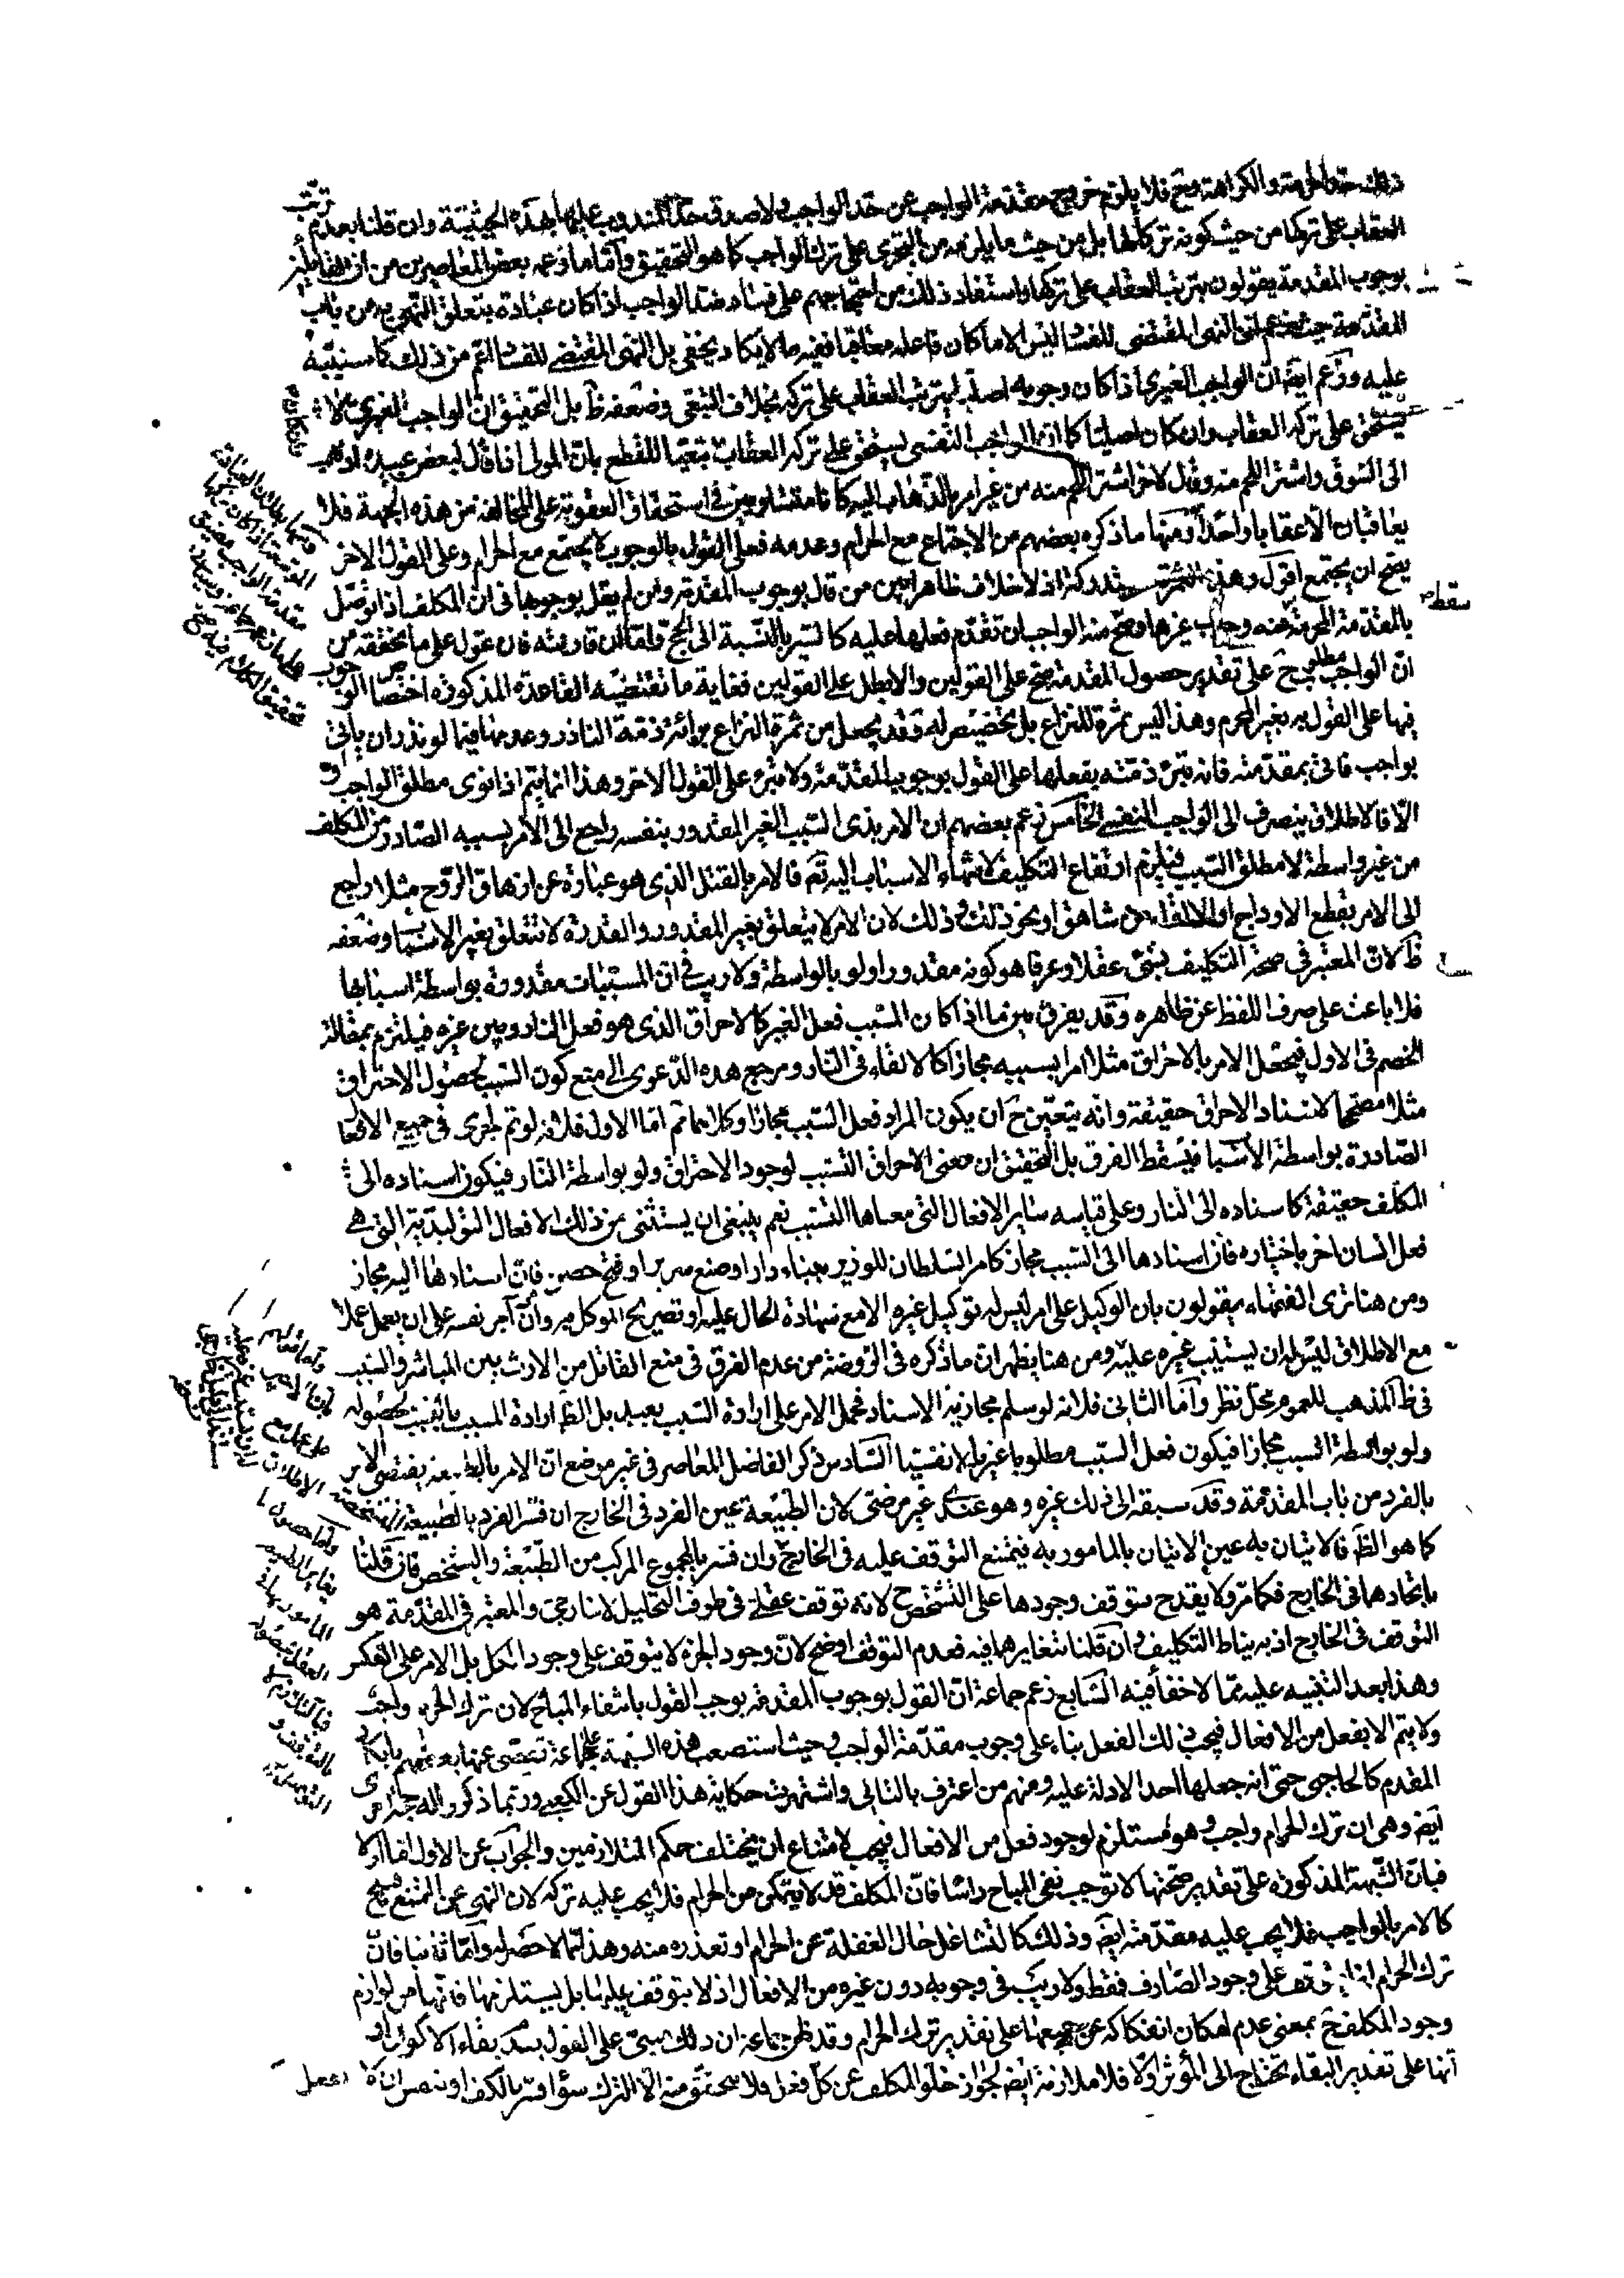 ذلك حد الحرمة والكراهة وح فلا يلزم خروج مقدمة الواجب عن حد الواجب ولا صدق حد المندوب عليها بهذه الحيثية وان قلنا بعدم ترتب
العقاب على تركها من حيث كونه تركا لها بل من حيث ما يلزمه من التجرى على ترك الواجب كما هو التحقيق وأما ما زعمه بعض المعاصرين من ان القائلين
بوجوب المقدمة يقولون بترتب العقاب على تركها واستفاد ذلك من احتجاجهم على فساد ضد الواجب اذا كان عبادة بتعلق النهى به من باب
المقدمة حيث زعم ان النهى المقتضى للفساد ليس الا ما كان فاعله معاقبا ففيه ما لا يكاد يخفى بل النهى المقتضى للفساد اعم من ذلك كما سننبه
عليه وزعم ايضا ان الواجب الغيرى اذا كان وجوبه اصليا يترتب العقاب على تركه بخلاف التبعى وضعفه ظ بل التحقيق ان الواجب الغيرى مط لا
يستحق على تركه العقاب وان كان اصليا كما ان الواجب النفسى يستحق على تركه العقاب وان كان تبعيا للقطع بان المولى اذا قال لبعض عبيده اذهب
الى السوق واشتر اللحم منه وقال لاخر اشتر اللحم منه من غير امر بالذهاب اليه كانا متساويين فى استحقاق العقوبة على المخالفة من هذه الجهة فلا
يعاقبان الا عقابا واحدا ومنها ما ذكره بعضهم من الاجتماع مع الحرام وعدمه فعلى القول بالوجوب لا يجتمع مع الحرام وعلى القول الاخر
يصح ان يجتمع اقول وهذه الثمرة اذ لا خلاف ظاهرا بين من قال بوجوب المقدمة ومن لم يقل بوجوبها فى ان المكلف اذا توصل
بالمقدمة المحرمة سقط عنه وجوب غيرها وصح منه الواجب ان تقدم فعلها عليه كالسير بالنسبة الى الحج واما ان قارنته فان عول على ما نحققه من
ان الواجب مطلوب ح على تقدير حصول المقدمة صح على القولين والا بطل على القولين فغاية ما تقتضيه القاعدة المذكورة اختصاص الوجوب
فيها على القول به بغير المحرم وهذا ليس ثمرة للنزاع بل تخصيص له وقد يجعل من ثمرة النزاع برائة ذمة الناذر وعدمها فيما لو نذر ان ياتى
بواجب فاتى بمقدمته فانه تبرء ذمته بفعلها على القول بوجوب المقدمة ولا تبرء على القول الاخر وهذا انما يتم اذا نوى مطلق الواجب و
الا فالاطلاق ينصرف الى الواجب النفسى الخامس زعم بعضهم ان الامر بذى السبب الغير المقدور بنفسه راجع الى الامر بسببه الصادر من المكلف
من غير واسطة لا مطلق السبب فيلزم ارتفاع التكليف لانتهاء الاسباب اليه تعم فالامر بالقتل الذى هو عبارة عن ازهاق الروح مثلا راجع
الى الامر بقطع الاوداج او الالقاء من شاهق او نحو ذلك وذلك لان الامر لا يتعلق بغير المقدور والقدرة لا تتعلق بغير الاسباب وضعفه
ظ لان المعتبر فى صحة التكليف بشئ عقلا وعرفا هو كونه مقدورا ولو بالواسطة ولا ريب فى ان المسببات مقدورة بواسطة اسبابها
فلا باعث على صرف اللفظ عن ظاهره وقد يفرق بين ما اذا كان المسبب فعل الغير كالاحراق الذى هو فعل النار وبين غيره فيلتزم بمقالة
الخصم فى الاول فيجعل الامر بالاحراق مثلا امرا بسببه مجازا كالالقاء فى النار ومرجع هذه الدعوى الى منع كون التسبب لحصول الاحتراق
مثلا مصححا لاسناد الاحراق حقيقة وانه يتعين ح ان يكون المراد فعل السبب مجازا وكلاهما مم اما الاول فلانه لو تم لجرى فى جميع الافعال
الصادرة بواسطة الاسباب فيسقط الفرق بل التحقيق ان معنى الاحراق التسبب لوجود الاحتراق ولو بواسطة النار فيكون اسناده الى
المكلف حقيقة كاسناده الى النار وعلى قياسه ساير الافعال التى معناها التسبب نعم ينبغى ان يستثنى من ذلك الافعال التوليدية التى هى
فعل انسان اخر باختياره فان اسنادها الى السبب مجاز كامر السلطان للوزير ببناء دار او صنع سرير او فتح حصن فان اسنادها اليه مجاز
ومن هنا ترى الفقهاء يقولون بان الوكيل على امر ليس له توكيل غيره الا مع شهادة الحال عليه او تصريح الموكل به وان آجر نفسه على ان يعمل عملا
مع الاطلاق ليس له ان يستنيب غيره عليه ومن هنا يظهر ان ما ذكره فى الروضة من عدم الفرق فى منع القاتل من الارث بين المباشر والسبب
فى ظ المذهب للعموم محل نظر وأما الثانى فلانه لو سلم مجازية الاسناد فحمل الامر على ارادة السبب بعيد بل الظ ارادة المسبب حصوله
ولو بواسطة السبب مجازا فيكون فعل السبب مطلوبا غيريا لا نفسيا السادس ذكر الفاضل المعاصر فى غير موضع ان الامر بالطبيعة يقتضى الامر
بالفرد من باب المقدمة وقد سبقه الى ذلك غيره وهو عندى غير مرضى لان الطبيعة عين الفرد فى الخارج ان فسر الفرد بالطبيعة المتشخصة
كما هو الظ فالاتيان به عين الاتيان بالمامور به فيمتنع التوقف عليه فى الخارج وان فسر بالمجموع المركب من الطبيعة والتشخص فان قلنا
باتحادهما فى الخارج فكما مر ولا يقدح توقف وجودها على التشخص ح لانه توقف عقلى فى ظرف التحليل لا خارجى والمعتبر فى المقدمة هو
التوقف فى الخارج اذ به يناط التكليف وان قلنا بتغايرهما فيه فعدم التوقف اوضح لان وجود الجزء لا يتوقف على وجود الكل بل الامر على العكس
وهذا بعد التنبيه عليه مما لا خفاء فيه السابع زعم جماعة ان القول بوجوب المقدمة يوجب القول بانتفاء المباح لان ترك الحرام واجب
ولا يتم الا بفعل من الافعال فيجب ذلك الفعل بناء على وجوب مقدمة الواجب وحيث استصعب هذه الشبهة على جماعة تفصى عنها بعضهم بانكار
المقدم كالحاجبى حتى انه جعلها احد الادلة عليه ومنهم من اعترف بالتالى واشتهرت حكاية هذا القول عن الكعبى وربما ذكروا له حجة اخرى
ايضا وهى ان ترك الحرام واجب وهو مستلزم لوجود فعل من الافعال فيجب لامتناع ان يختلف حكم المتلازمين والجواب عن الاول اما اولا
فبان الشبهة المذكورة على تقدير صحتها لا توجب نفى المباح راسا فان المكلف قد لا يتمكن من الحرام فلا يجب عليه تركه لان النهى عن الممتنع قبيح
كالامر بالواجب فلا يجب عليه مقدمته ايضا وذلك كالتشاغل حال الغفلة عن الحرام او تعذره منه وهذا مما لا حصر له واما ثانيا فبان
ترك الحرام انما يتوقف على وجود الصارف فقط ولا ريب فى وجوبه دون غيره من الافعال اذ لا يتوقف عليها بل يستلزمها فانها من لوازم
وجود المكلف ح بمعنى عدم امكان انفكاكه عن جميعها على تقدير ترك الحرام وقد ظن جماعة ان ذلك مبنى على القول بعدم بقاء الاكوان او
انها على تقدير البقاء تحتاج الى المؤثر والا فلا ملازمة ايضا لجواز خلو المكلف عن كل فعل فلا يتحقق منه الا الترك سواء فسر بالكف او بنفس ان لا يفعل